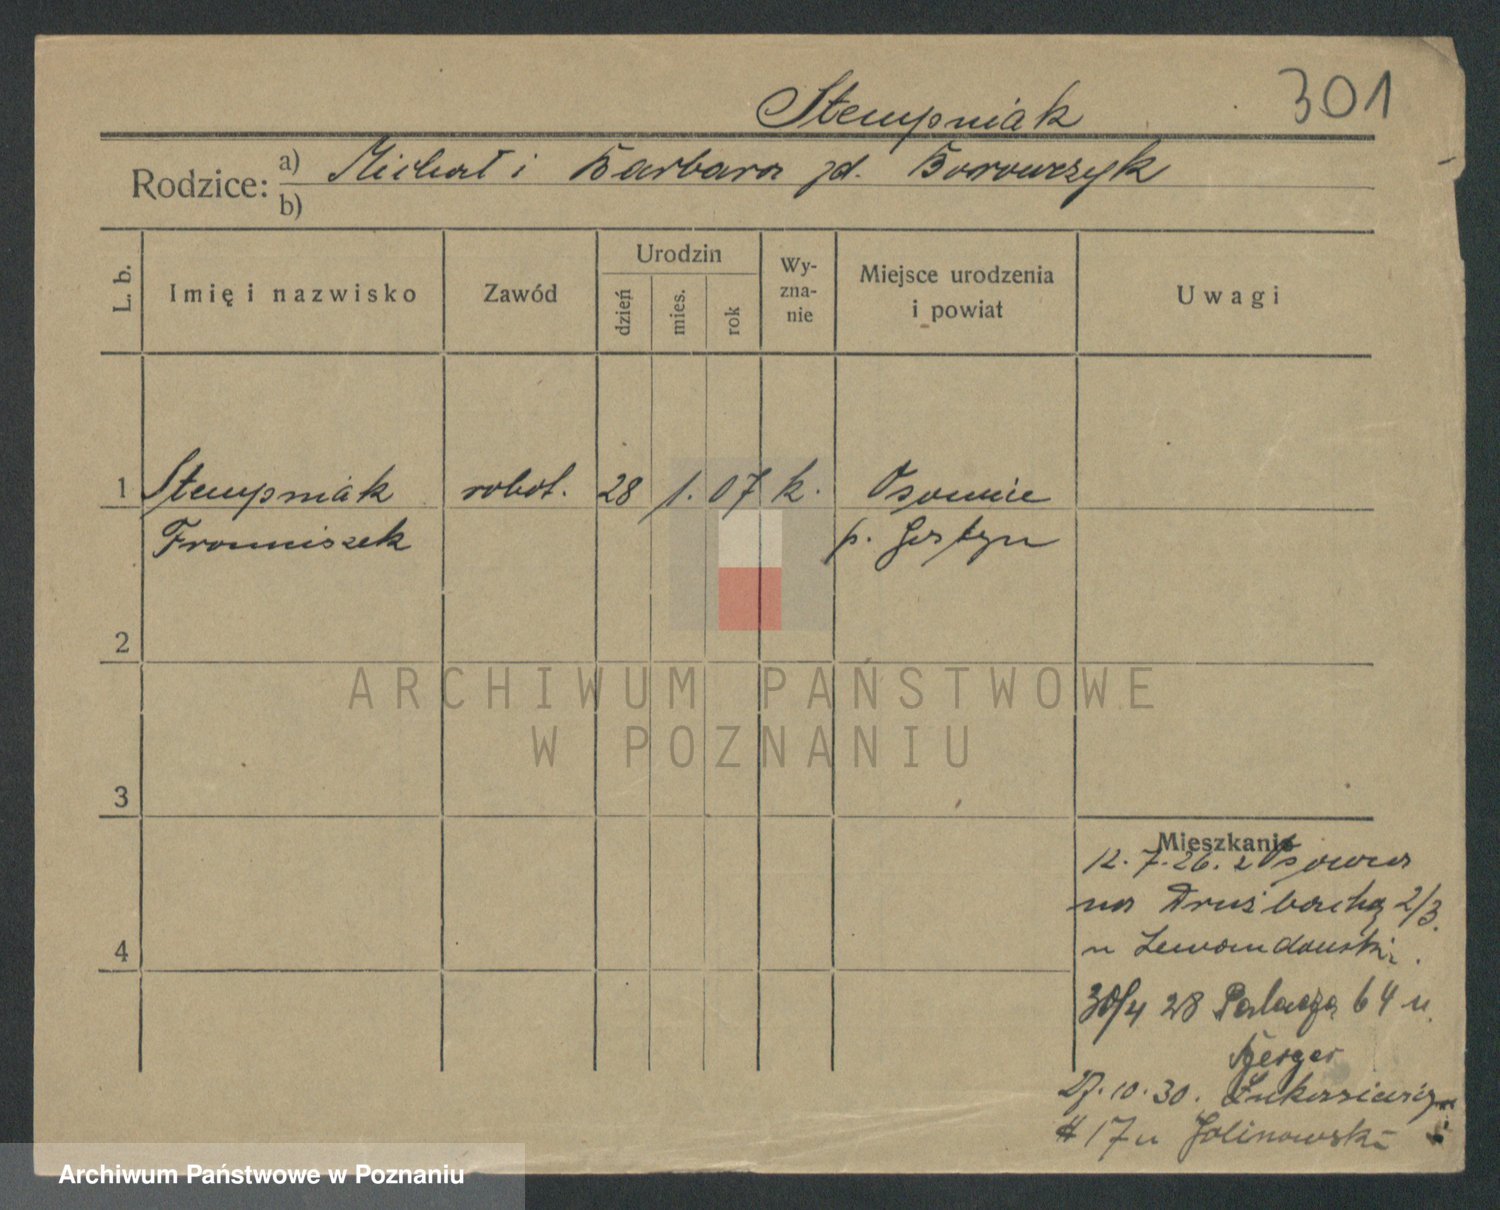 Stempniak 301
Rodzice: a) Michał i Barbara zd. Borowczyk
b)
L. b. Imię i nazwisko Zawód Urodzin dzień mies. rok Wy-zna-nie Miejsce urodzenia i powiat Uwagi
1 Stempniak robot. 28 1. 07 k. Osowie
Franciszek p. Gostyn
2
ARCHIWUM PAŃSTWOWE
W POZNANIU
3
Mieszkanie
12.7.26. z Osowa
na Drużbacką 2/3.
4
u Lewandowski.
30/4 28 Palacza 64 u
Berger
27.10.30. Łukasiewicza
17 u Golinowski
Archiwum Państwowe w Poznaniu